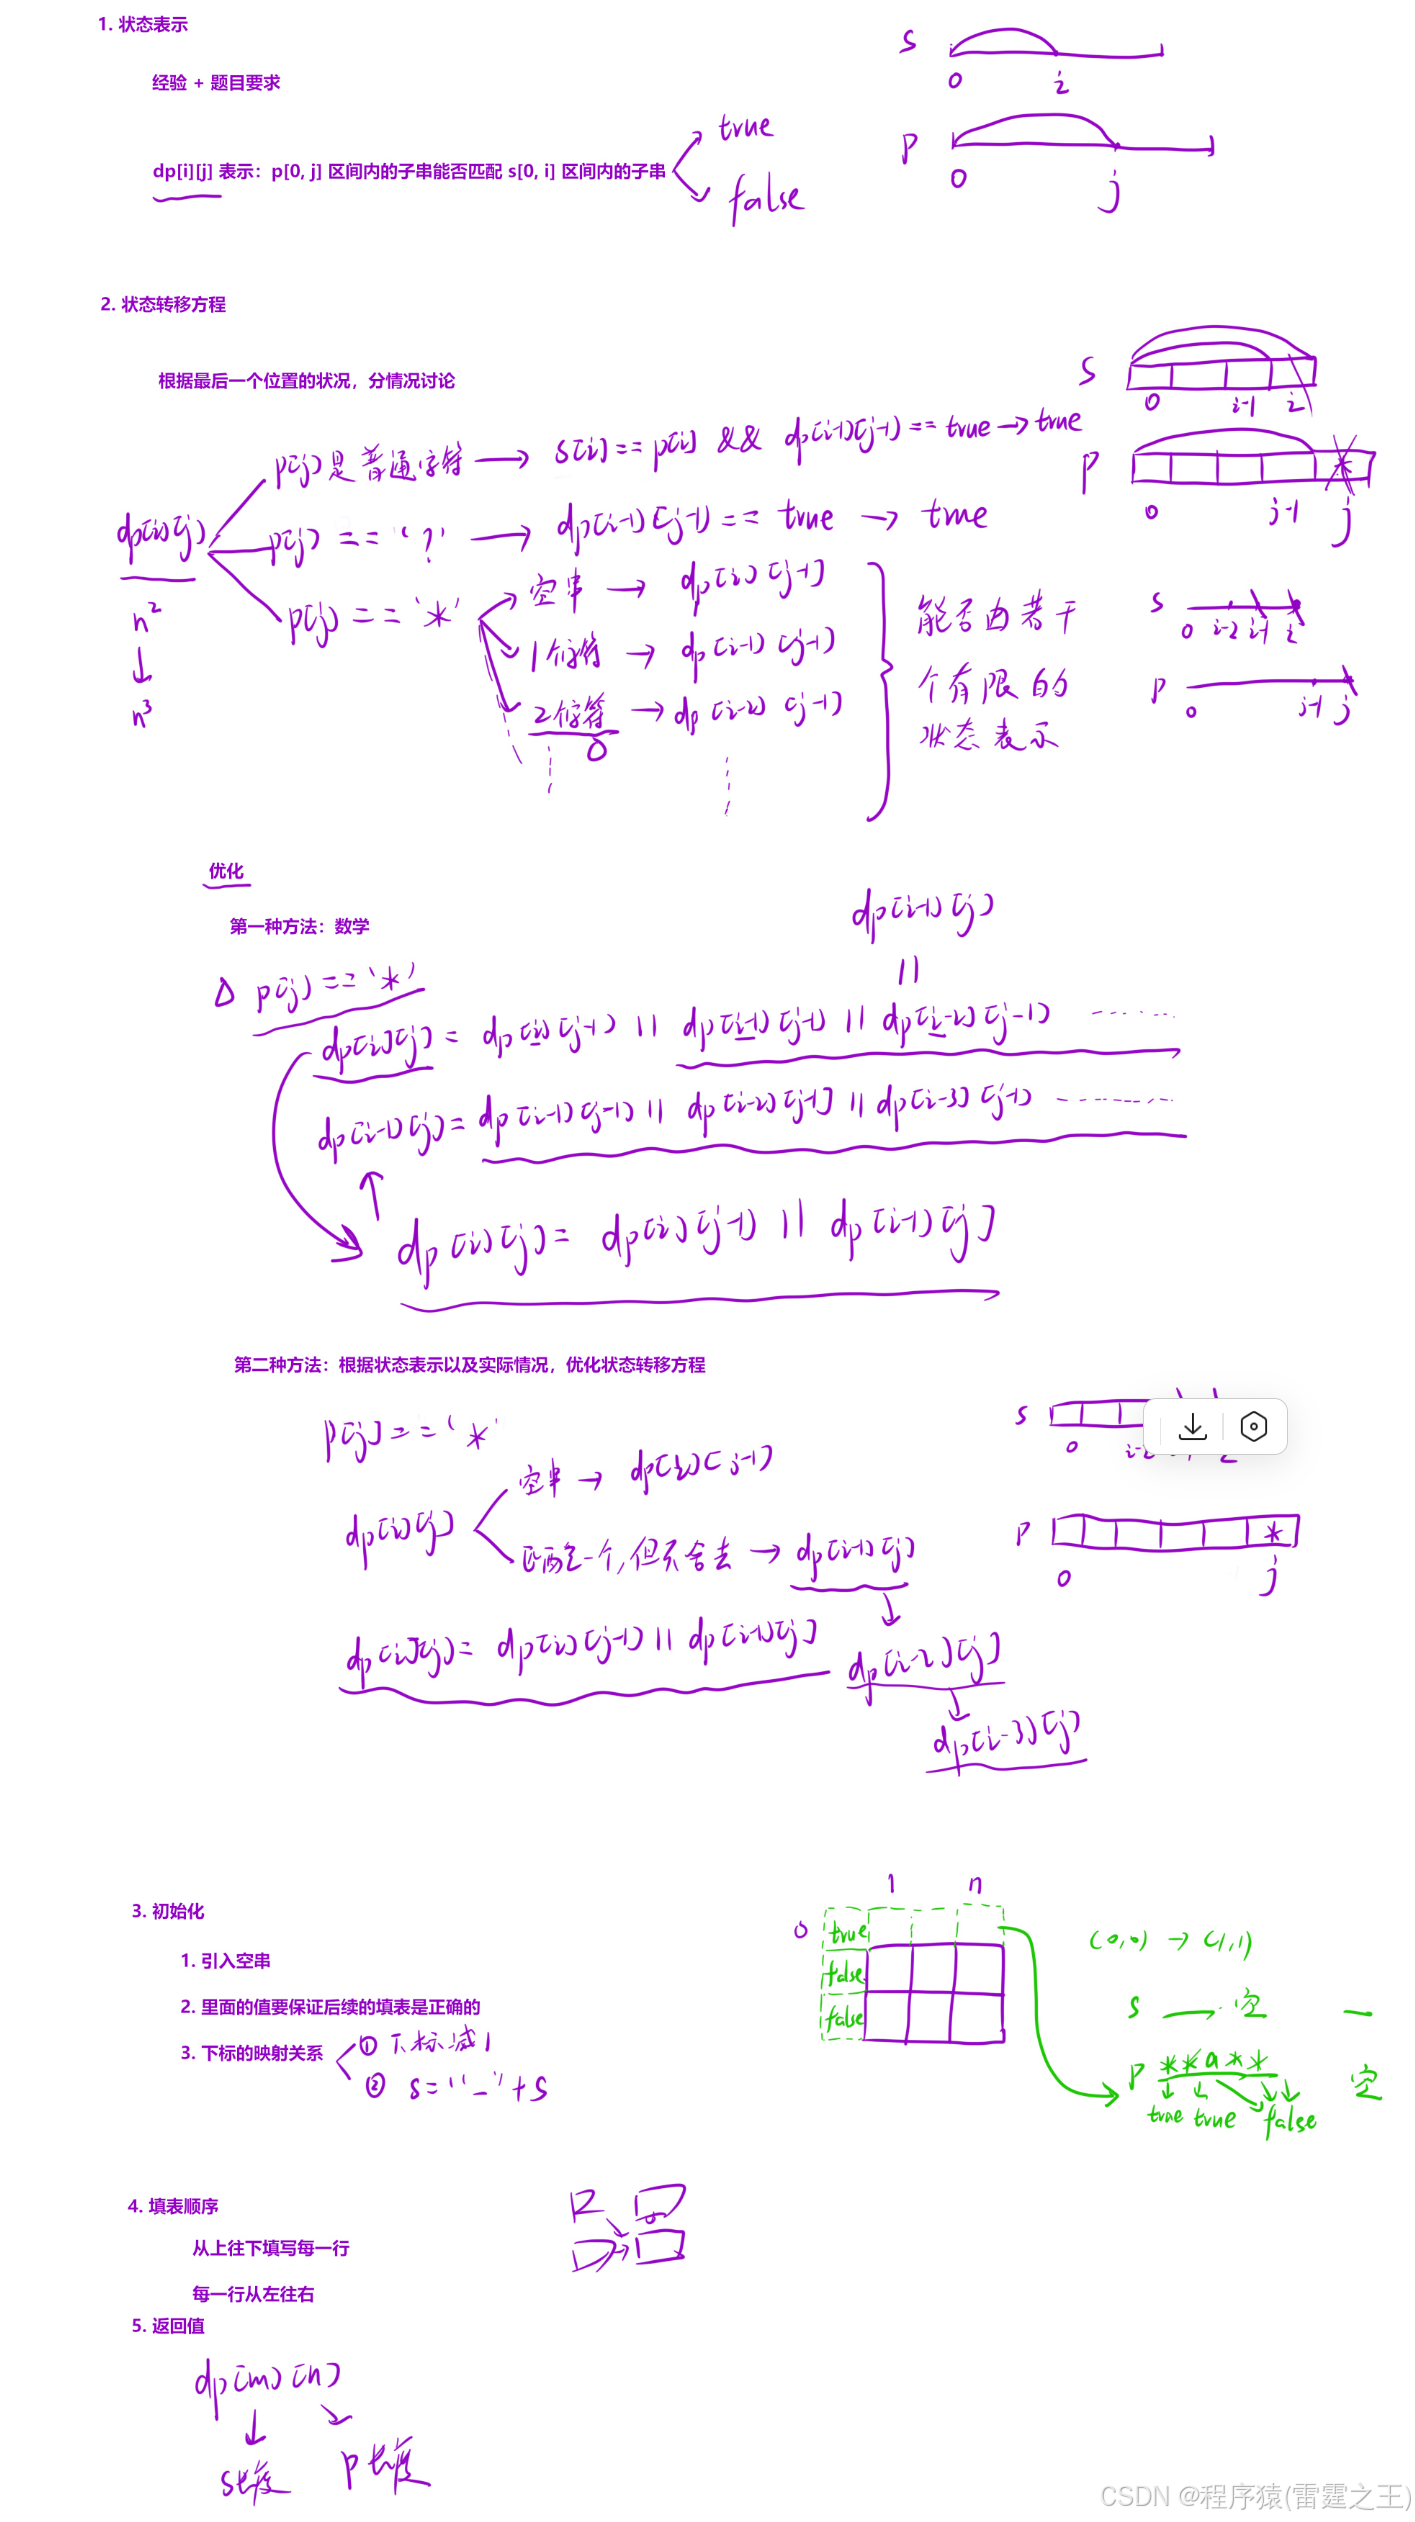 1. 状态表示
经验 + 题目要求
dp[i][j] 表示：p[0, j] 区间内的子串能否匹配 s[0, i] 区间内的子串
true
false
s
0 i
p
0 j
2. 状态转移方程
根据最后一个位置的状况，分情况讨论
s
0 i-1 i
p
*
0 j-1 j
dp[i][j]
n²
n³
p[j]是普通字符 → s[i] == p[j] && dp[i-1][j-1] == true → true
p[j] == '?' → dp[i-1][j-1] == true → true
p[j] == '*'
空串 → dp[i][j-1]
1个字符 → dp[i-1][j-1]
2个字符 → dp[i-2][j-1]
能否由若干
个有限的
状态表示
s
0 i-2 i-1 i
p
0 j-1 j
优化
第一种方法：数学
dp[i-1][j]
||
△ p[j] == '*'
dp[i][j] = dp[i][j-1] || dp[i-1][j-1] || dp[i-2][j-1] ------
dp[i-1][j] = dp[i-1][j-1] || dp[i-2][j-1] || dp[i-3][j-1] ------
dp[i][j] = dp[i][j-1] || dp[i-1][j]
第二种方法：根据状态表示以及实际情况，优化状态转移方程
p[j] == '*'
s
0 i-2
p
*
0 j
dp[i][j]
空串 → dp[i][j-1]
匹配一个，但不舍去 → dp[i-1][j]
dp[i][j] = dp[i][j-1] || dp[i-1][j]
dp[i-2][j]
dp[i-3][j]
3. 初始化
1. 引入空串
2. 里面的值要保证后续的填表是正确的
3. 下标的映射关系
① 下标减1
② s = "_" + s
1 n
0 true
false
false
(0,0) → (1,1)
s 空
p **a** 空
true true false
4. 填表顺序
从上往下填写每一行
每一行从左往右
5. 返回值
dp[m][n]
s长度 p长度
CSDN @程序猿(雷霆之王)